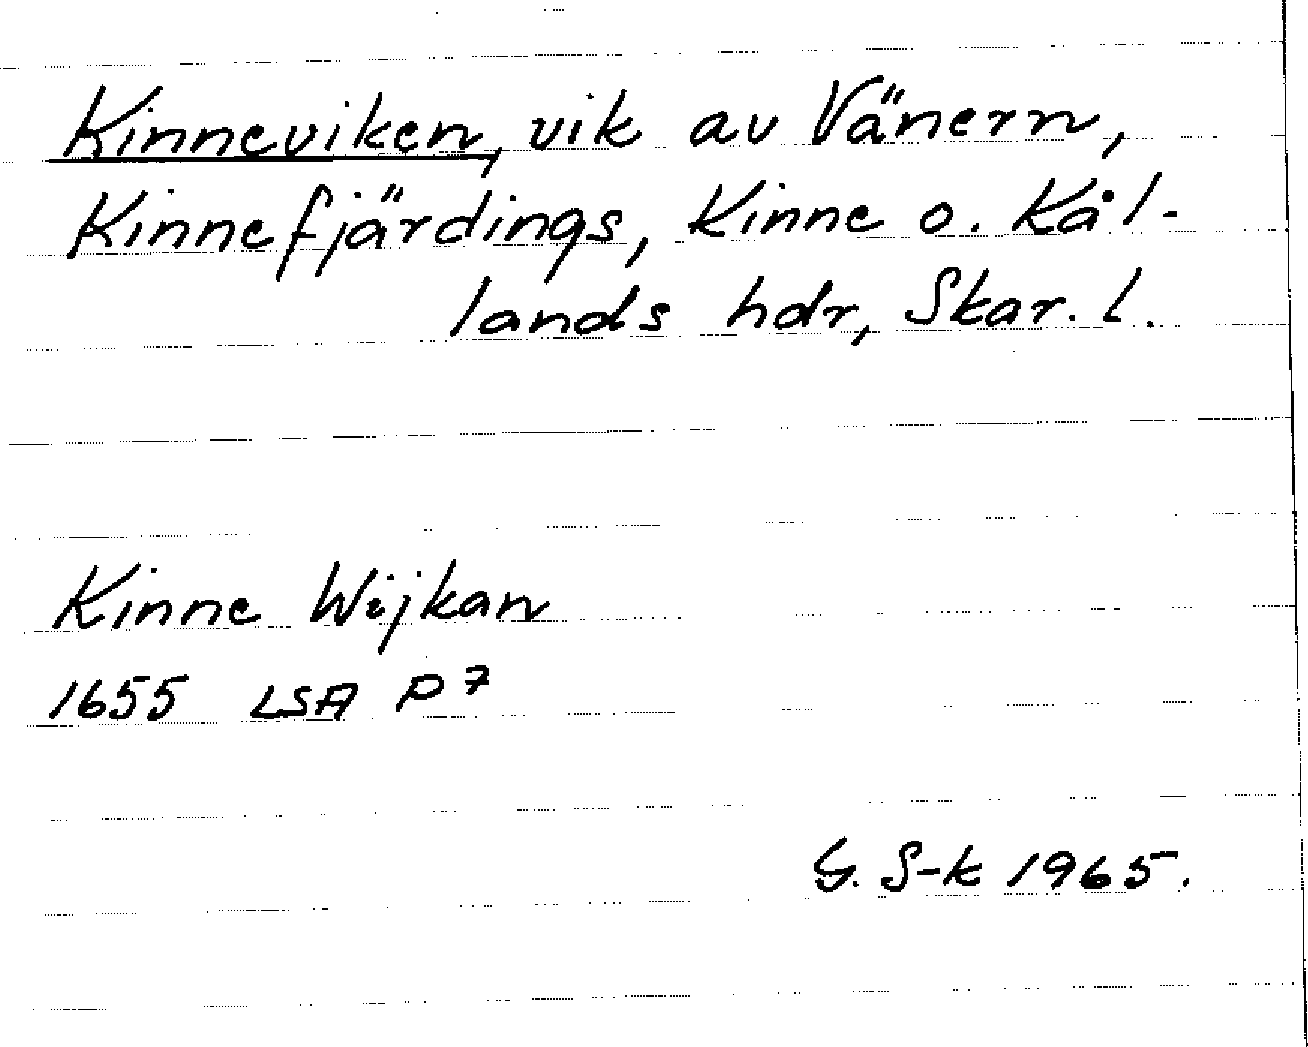 Kinneviken, vik av Vänern,
Kinnefjärdings, Kinne o. Kål-
lands hdr, Skar. l.
Kinne Wijkan
1655 LSA P7
G. S-k 1965.